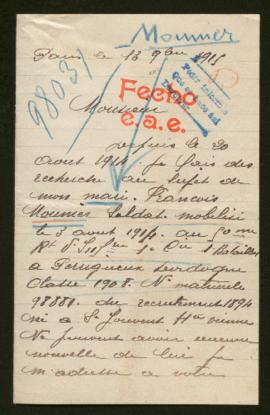 Mounier
Paris le 13 9bre 1915
98031
Fecho
e.a.e.
Monsieur
Depuis le 20
Aout 1914 je fais des
recherche au sujet de
mon mari. François
Mounier Soldat mobilisé
le 3 aout 1914. au 50 me
Rt d'Inf
a Perigueux Dordogne
Classe 1908. No matricule
98888. du recrutement 1894
né a St Jouvent Hte vienne
Ne pouvant avoir aucune
nouvelle de lui je
m'adresse a votre